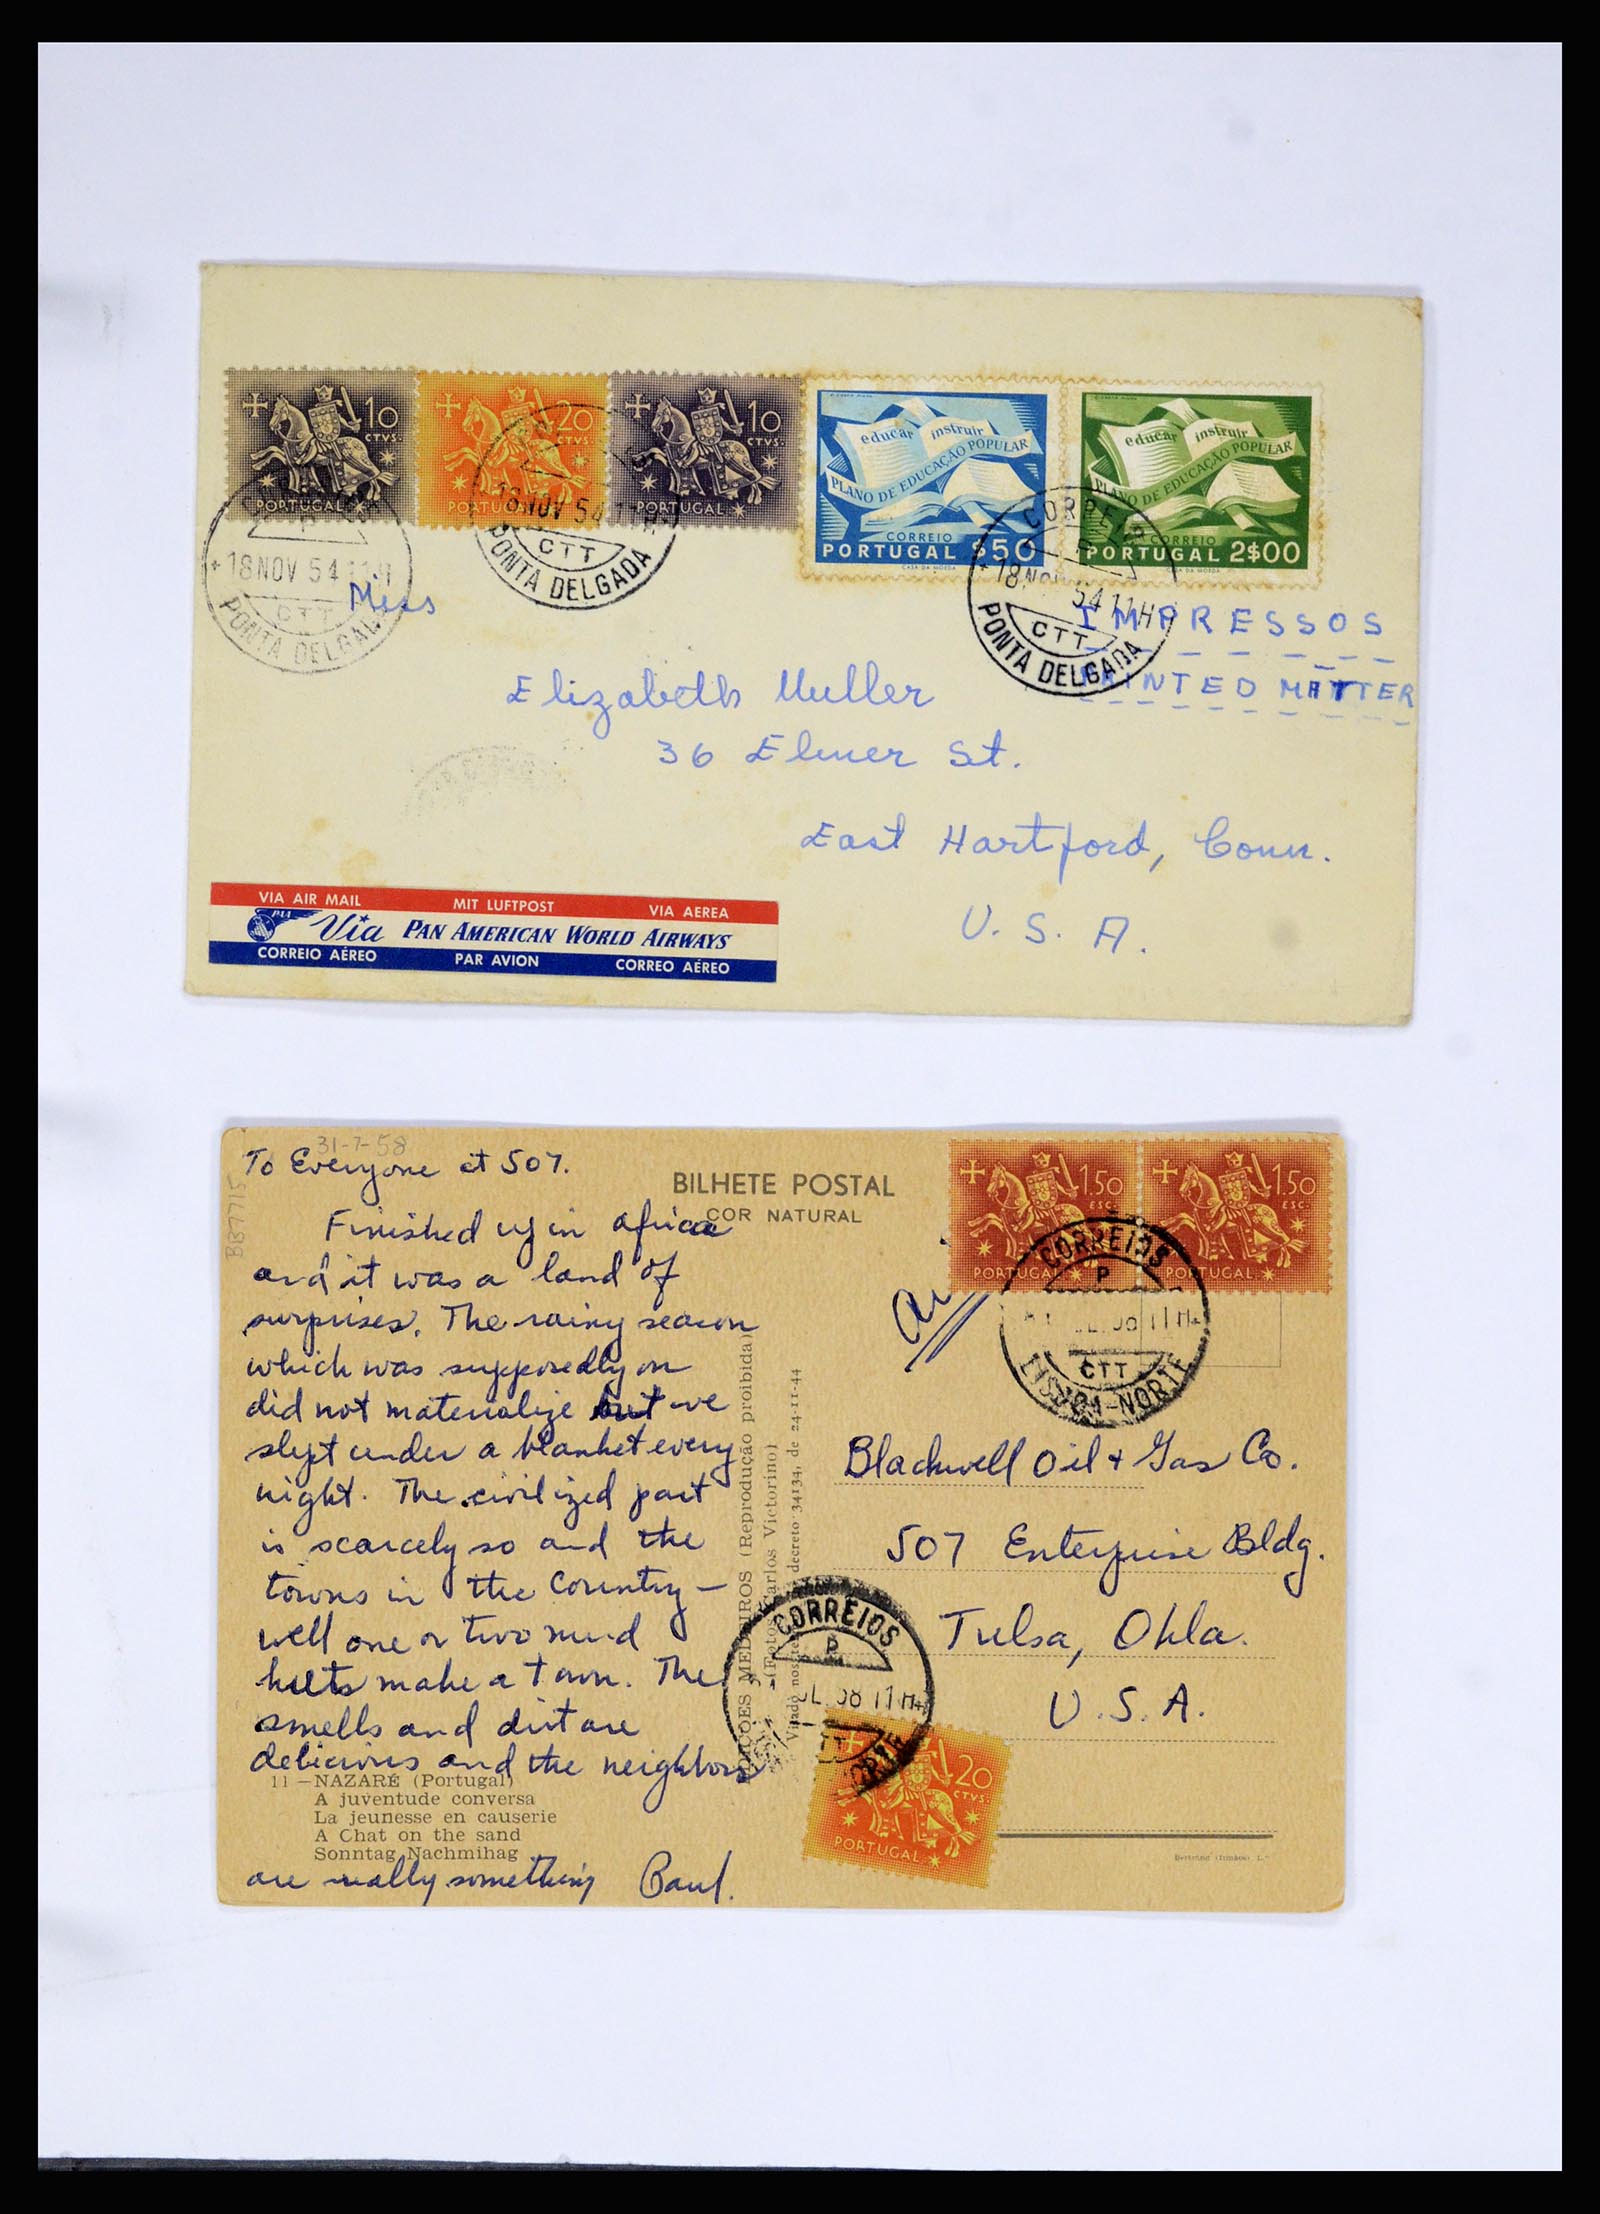 10 CTVS. PORTUGAL
20 CTVS. PORTUGAL
10 CTVS. PORTUGAL
educar instruir
PLANO DE EDUCAÇÃO POPULAR
CORREIO
PORTUGAL $50
CASA DA MOEDA
educar instruir
PLANO DE EDUCAÇÃO POPULAR
CORREIO
PORTUGAL 2$00
CASA DA MOEDA
18 NOV 54 11H
CTT
PONTA DELGADA
18 NOV 54 11H
CTT
PONTA DELGADA
CORREIOS
18 NOV 54 11H
CTT
PONTA DELGADA
IMPRESSOS
PRINTED MATTER
Miss
Elizabeth Muller
36 Elmer St.
East Hartford, Conn.
U. S. A.
VIA AIR MAIL MIT LUFTPOST VIA AEREA
PAA Via PAN AMERICAN WORLD AIRWAYS
CORREIO AÉREO PAR AVION CORREO AÉREO
31-7-58
BB7715
To Everyone at 507.
Finished up in Africa
and it was a land of
surprises. The rainy season
which was supposedly on
did not materialize but we
slept under a blanket every
night. The civilized part
is scarcely so and the
towns in the country —
well one or two mud
huts make a town. The
smells and dirt are
delicious and the neighbors
are really something Paul.
11 — NAZARÉ (Portugal)
A juventude conversa
La jeunesse en causerie
A Chat on the sand
Sonntag Nachmihag
BILHETE POSTAL
COR NATURAL
EDIÇÕES MEDEIROS (Reprodução proibida)
(Fotos Carlos Victorino)
decreto 34134, de 24-11-44
1.50 ESC. PORTUGAL
1.50 ESC. PORTUGAL
CORREIOS
P
11H
CTT
LISBOA-NORTE
Blackwell Oil & Gas Co.
507 Enterprise Bldg.
Tulsa, Okla.
U.S.A.
CORREIOS
P
11H
CTT
20 CTVS. PORTUGAL
Bertrand (Irmãos) L.